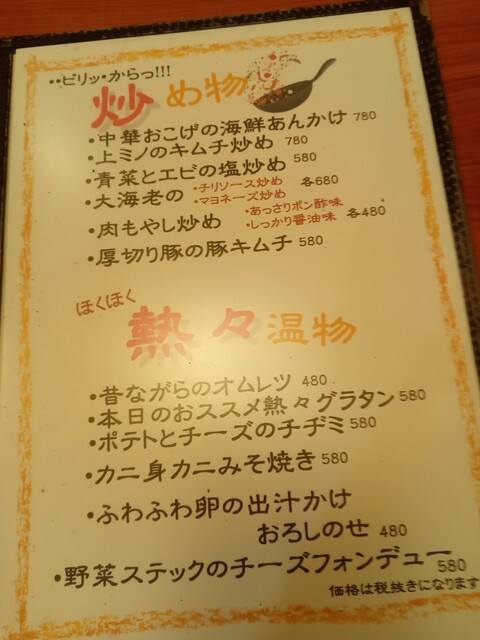 ••ピリッ•からっ!!!
炒め物
•中華おこげの海鮮あんかけ 780
•上ミノのキムチ炒め 780
•青菜とエビの塩炒め 580
•大海老の •チリソース炒め 各680
•マヨネーズ炒め
•肉もやし炒め •あっさりポン酢味
•しっかり醤油味 各480
•厚切り豚の豚キムチ 580
ほくほく
熱々温物
•昔ながらのオムレツ 480
•本日のおススメ熱々グラタン 580
•ポテトとチーズのチヂミ 580
•カニ身カニみそ焼き 580
•ふわふわ卵の出汁かけ
おろしのせ 480
•野菜スティックのチーズフォンデュー 580
価格は税抜きになります